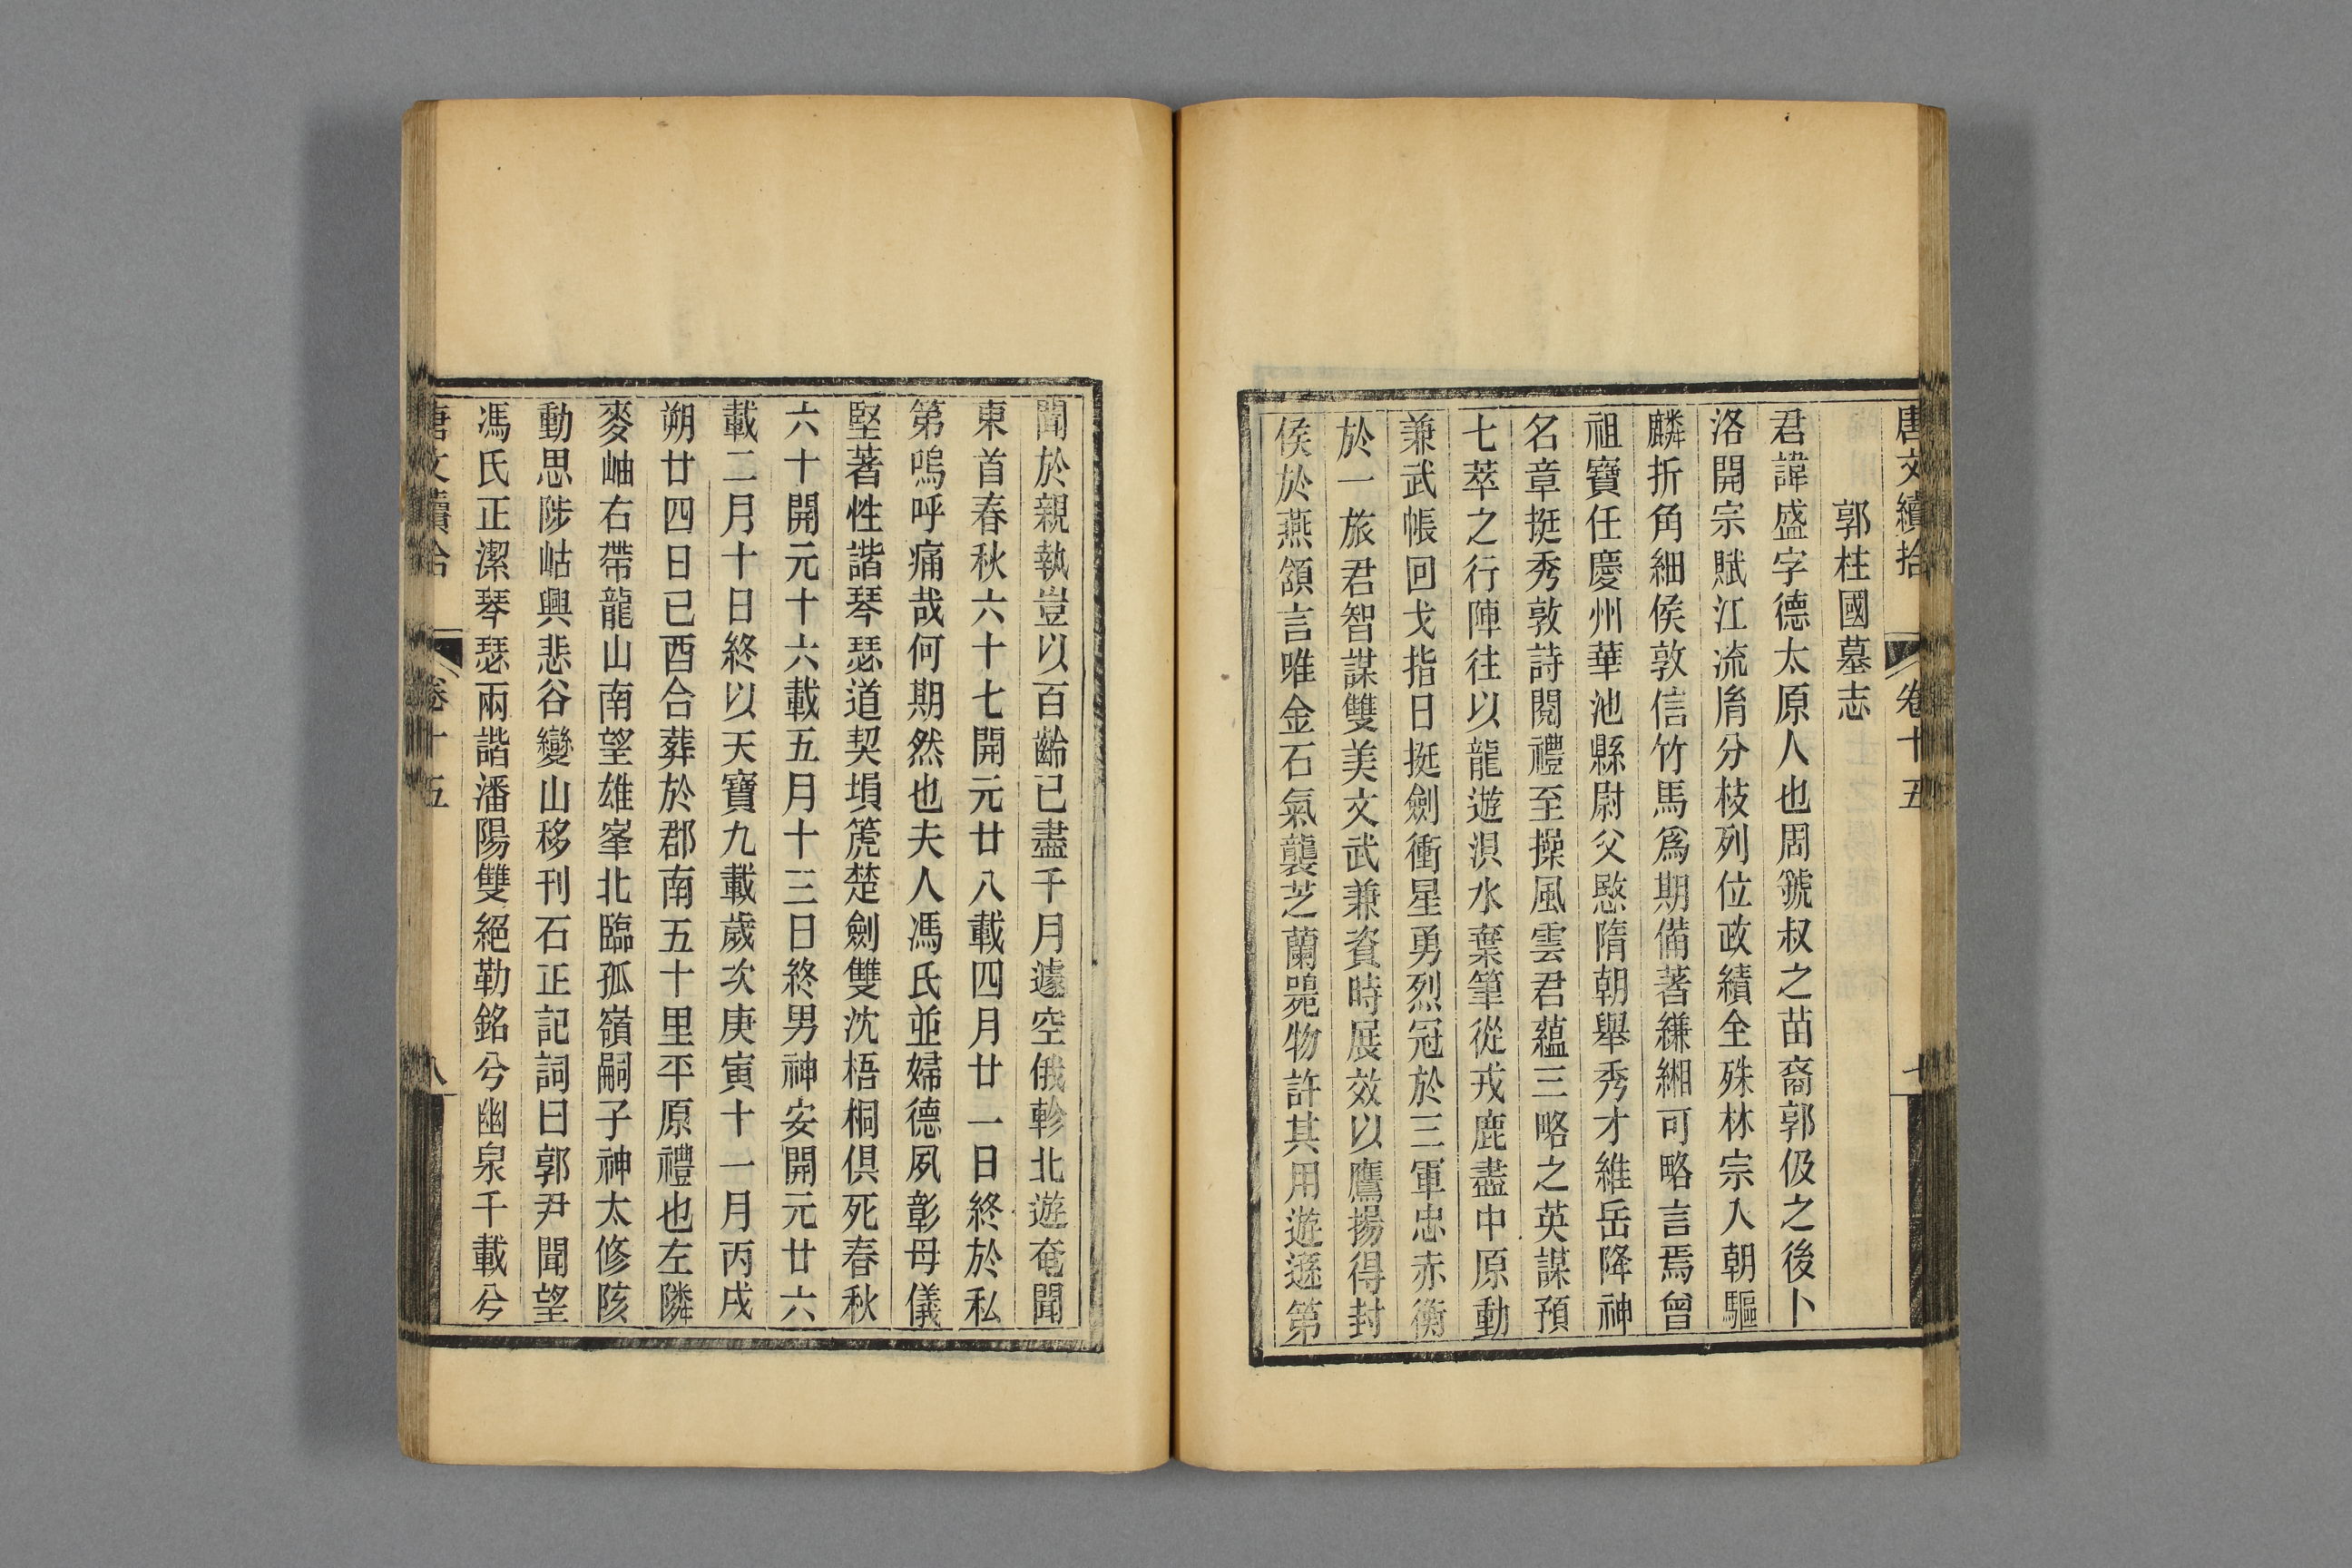 唐文續拾　卷十五　七
郭柱國墓志
君諱盛字德太原人也周虢叔之苗裔郭伋之後卜
洛開宗賦江流胤分枝列位政績全殊林宗入朝驅
麟折角細侯敦信竹馬爲期備著縑緗可略言焉曾
祖寶任慶州華池縣尉父愍隋朝舉秀才維岳降神
名章挺秀敦詩閱禮至操風雲君蘊三略之英謀預
七萃之行陣往以龍遊浿水棄筆從戎鹿盡中原動
兼武帳回戈指日挺劍衝星勇烈冠於三軍忠赤衡
於一旅君智謀雙美文武兼資時展效以鷹揚得封
侯於燕頷言唯金石氣襲芝蘭毙物許其用遊遜第
聞於親執豈以百齡已盡千月遽空俄軫北遊奄聞
東首春秋六十七開元廿八載四月廿一日終於私
第嗚呼痛哉何期然也夫人馮氏並婦德夙彰母儀
堅著性諧琴瑟道契塤篪楚劍雙沈梧桐俱死春秋
六十開元十六載五月十三日終男神安開元廿六
載二月十日終以天寶九載歲次庚寅十一月丙戌
朔廿四日已酉合葬於郡南五十里平原禮也左隣
麥岫右帶龍山南望雄峯北臨孤嶺嗣子神太修陔
動思陟岵興悲谷變山移刊石正記詞曰郭尹聞望
馮氏正潔琴瑟兩諧潘陽雙絕勒銘兮幽泉千載兮
唐文續拾　卷十五　八